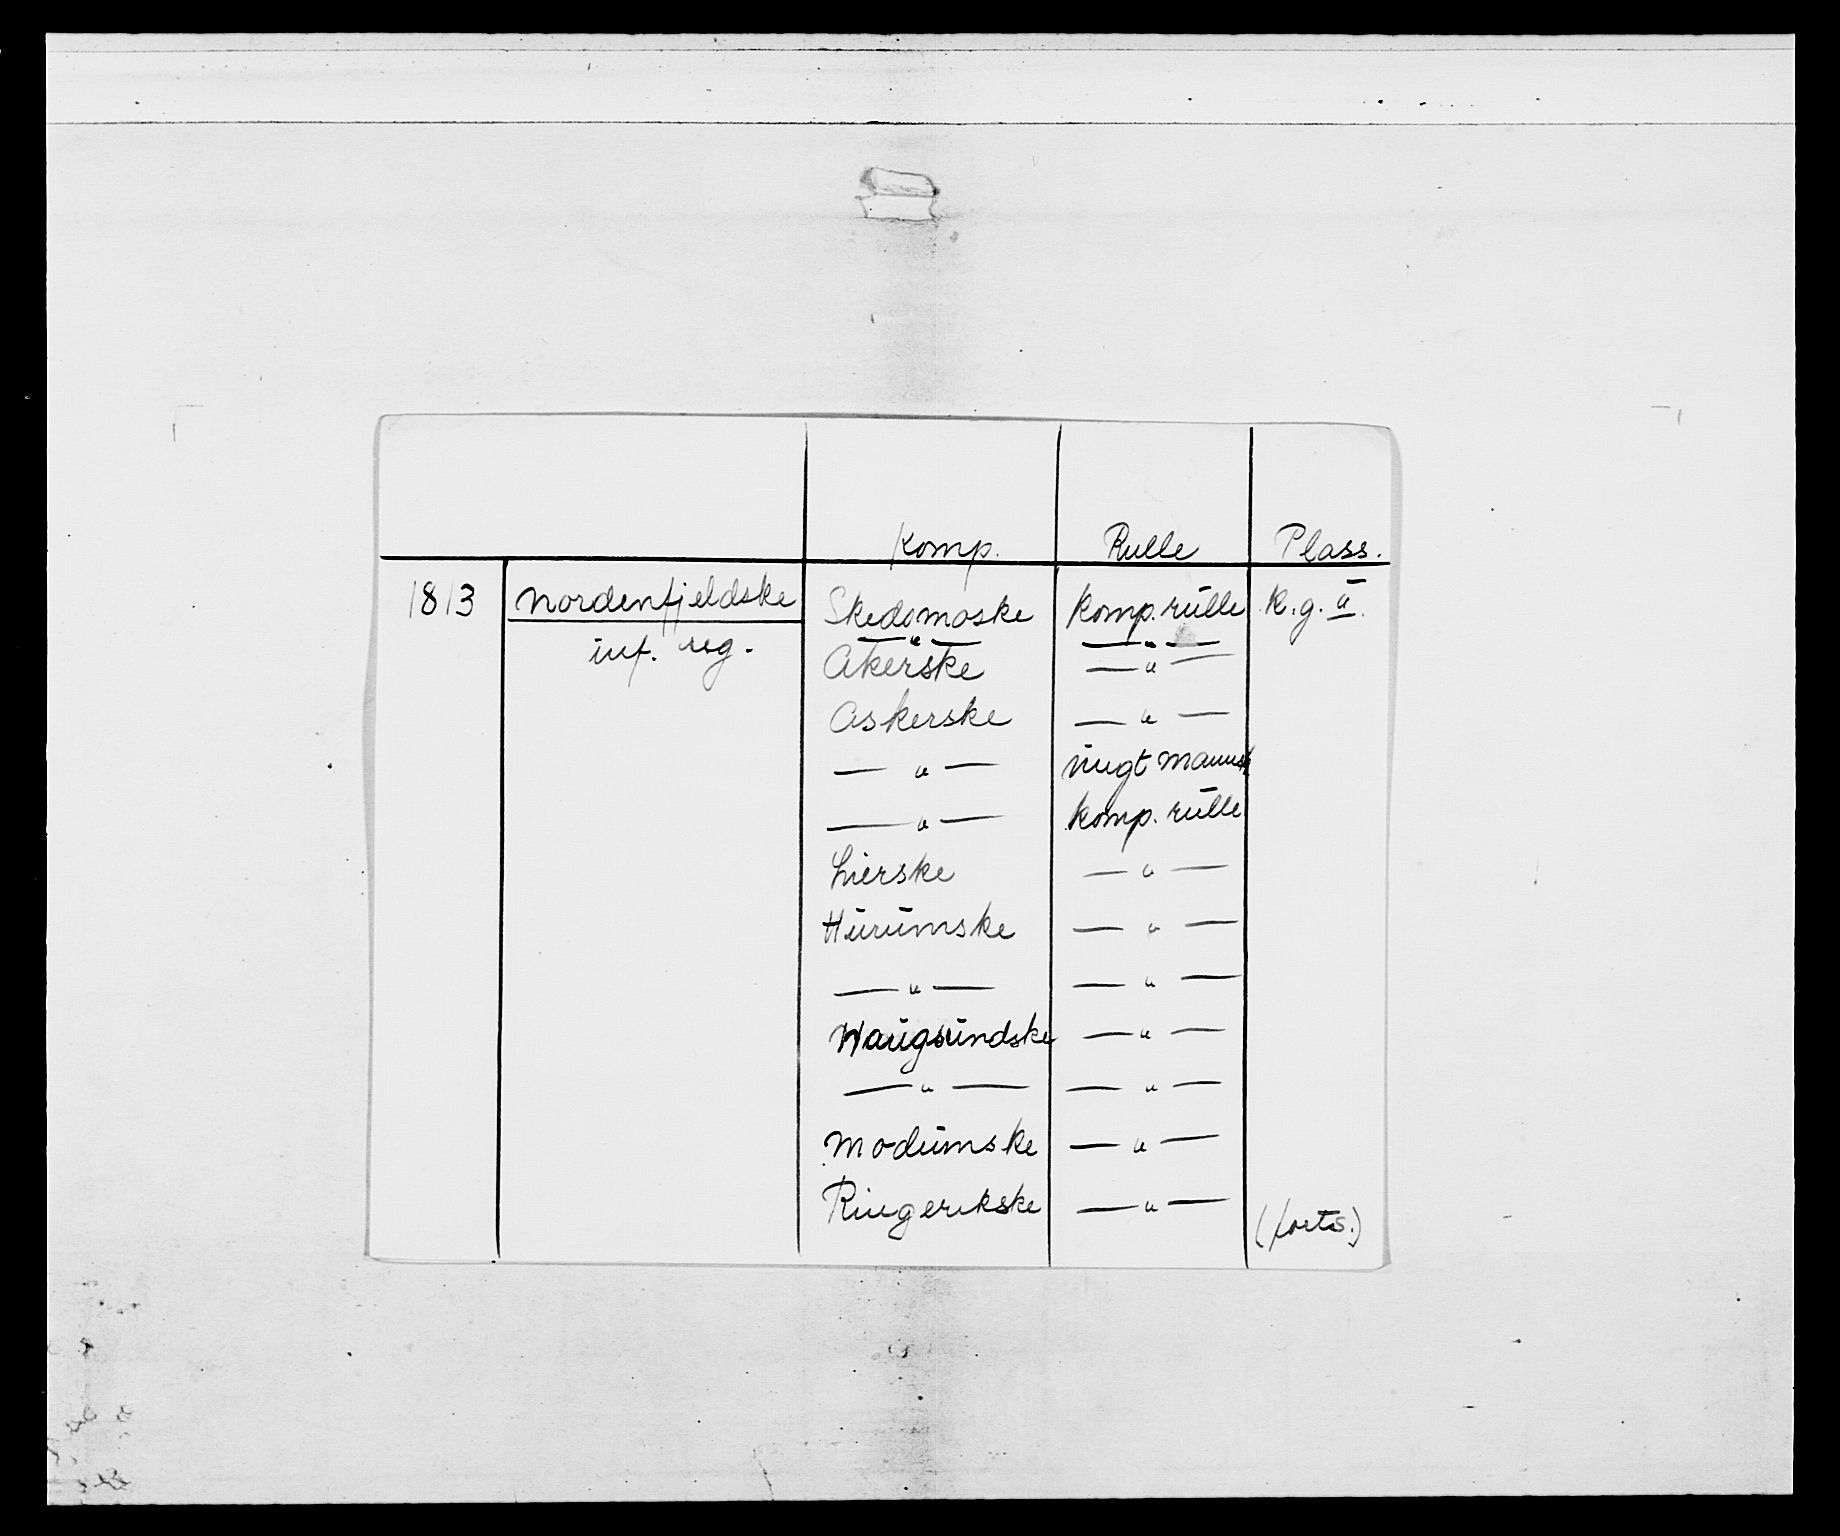 Komp. Rulle Plass.
1813 Nordenfjeldske Skedsmoske komp. rulle K.g. II.
inf. reg. — " — — " —
Akerske — " —
Askerske — " —
— " — ungt mannsk
— " — komp. rulle
Lierske — " —
Hurumske — " —
— " — — " —
Haugsundske — " —
— " — — " —
Modumske — " —
Ringerikske — " —
(forts.)